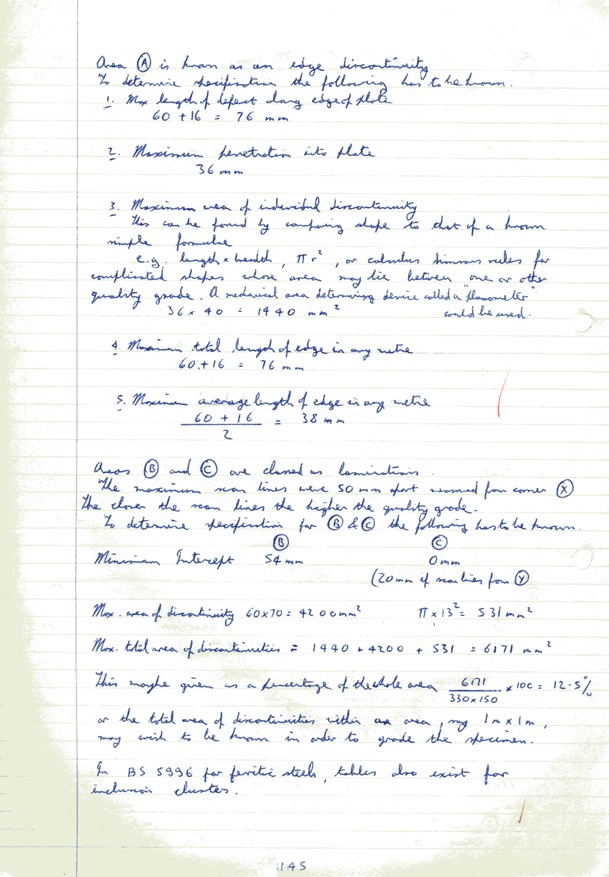 Area Ⓐ is known as an edge discontinuity
To determine specification the following has to be known.
1. Max length of defect along edge of plate
60 + 16 = 76 mm
2. Maximum penetration into plate
36 mm
3. Maximum area of individual discontinuity
This can be found by comparing shape to that of a known
simple formulae
e.g. length x breadth, π r², or calculus simsons rules for
complicated shapes whose area may lie between one or other
quality grade. A mechanical area determining device called a "planometer"
36 x 40 = 1440 mm² could be used.
4. Maximum total length of edge in any metre
60 + 16 = 76 mm
5. Maximum average length of edge in any metre
60 + 16 / 2 = 38 mm
Areas Ⓑ and Ⓒ are classed as laminations.
The maximum scan lines were 50 mm apart scanned from corner Ⓧ
The closer the scan lines the higher the quality grade.
To determine specification for Ⓑ & Ⓒ the following has to be known.
Ⓑ Ⓒ
Minimum Intercept 54 mm 0 mm
(20 mm if scan lines from Ⓨ
Max. area of discontinuity 60x70 = 4200 mm² π x 13² = 531 mm²
Max. total area of discontinuities = 1440 + 4200 + 531 = 6171 mm²
This maybe given as a percentage of the whole area 6171 / 330 x 150 x 100 = 12.5%
or the total area of discontinuities within an area, say 1m x 1m,
may wish to be known in order to grade the specimen.
In BS 5996 for ferritic steels, tables also exist for
inclusion clusters.
145